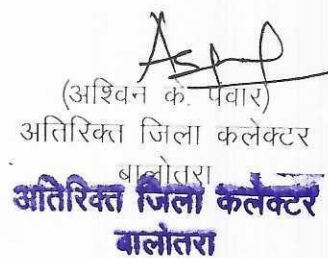 (अश्विन के. पंवार)
अतिरिक्त जिला कलेक्टर
बालोतरा
अतिरिक्त जिला कलेक्टर
बालोतरा